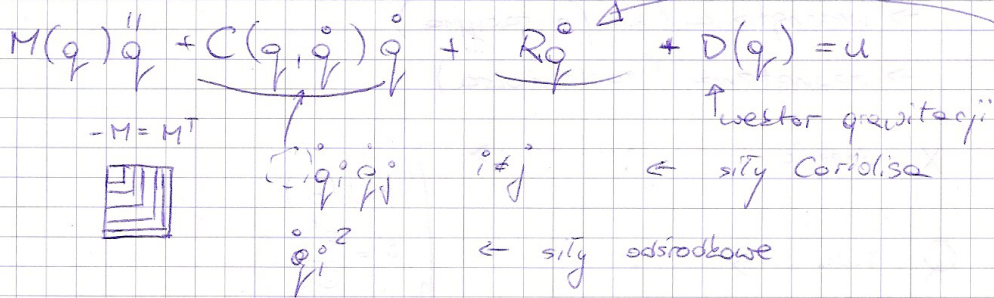 M(q) q̈ + C(q, q̇) q̇ + R q̇ + D(q) = u
↑ wektor grawitacji
- M = Mᵀ
( ) q̇i q̇j i ≠ j ← siły Coriolisa
q̇i² ← siły odśrodkowe